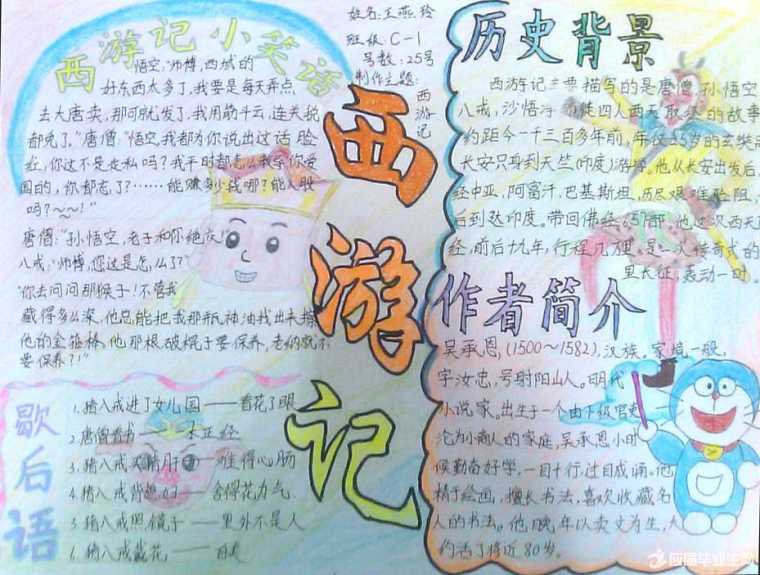 西游记小笑话
悟空:"师傅,西域的
好东西太多了,我要是每天弄点
去大唐卖,那可就发了,我用筋斗云,连关税
都免了。"唐僧:"悟空,我都为你说出这话脸
红,你这不是走私吗?我平时都怎么教导你爱
国的,你都忘了?……能赚多少钱哪?能入股
吗?~~!"
唐僧:"孙悟空,老子和你绝交!"
八戒:"师傅,您这是怎么了?"
"你去问问那猴子!不管我
藏得多么深,他总能把我那瓶神油找出来擦
他的金箍棒,他那根破棍子要保养,老衲就不
要保养?!"
歇后语
1.猪八戒进了女儿国——看花了眼
2.唐僧看书——本正经
3.猪八戒——难得心肠
4.猪八戒背媳妇——舍得花力气
5.猪八戒照镜子——里外不是人
6.猪八戒戴花——自美
姓名:王燕玲
班级:C-1
号数:25号
制作主题:
西游记
西游记
历史背景
西游记主要描写的是唐僧,孙悟空
八戒,沙悟净师徒四人西天取经的故事
约距今一千三百多年前,年仅25岁的玄奘
长安只身到天竺(印度)游学。他从长安出发后,
经中亚,阿富汗,巴基斯坦,历尽艰难险阻,
后到达印度。带回佛经657部,他这次西天
经,前后十九年,行程几万里,是一次传奇式的
里长征,轰动一时。
作者简介
吴承恩,(1500~1582),汉族。家境一般,
字汝忠,号射阳山人。明代
小说家。出生于一个由下级官吏
沦为小商人的家庭,吴承恩小时
候勤奋好学,一目十行,过目成诵。他
精于绘画,擅长书法,喜欢收藏名
人的书法。他晚年以卖文为生,大
约活了将近80岁。
应届毕业生网